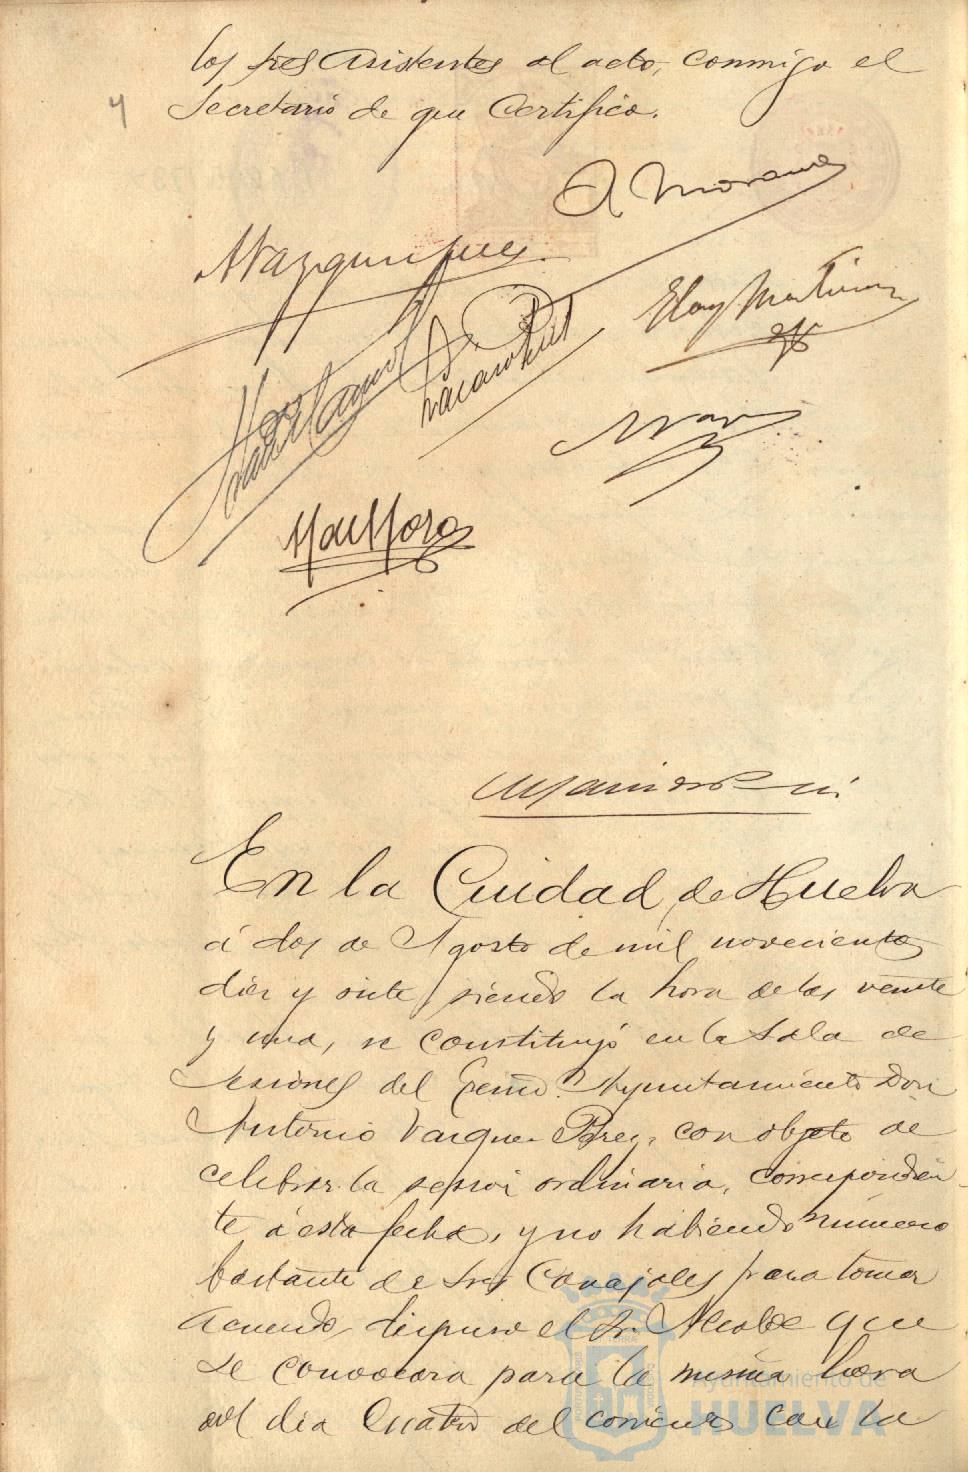 los tres Asistentes al acto, conmigo el
Secretario de que Certifico.
4
A Morano
AVazquez Perez
Eloy Martinez
HdelMoro
En la Cuidad de Huelva
á dos de Agosto de mil novecientos
diez y siete, siendo la hora de las veinte
y una, se constituyó en la Sala de
Sesiones del Excmo. Ayuntamiento Don
Antonio Vazquez Perez, con objeto de
celebrar la sesión ordinaria, correspondien-
te á esta fecha, y no habiendo número
bastante de Sres Concejales para tomar
Acuerdo, dispuso el Sr. Alcalde que
se convocara para la misma hora
del dia Cuatro del corriente con la
Ayuntamiento de
HUELVA